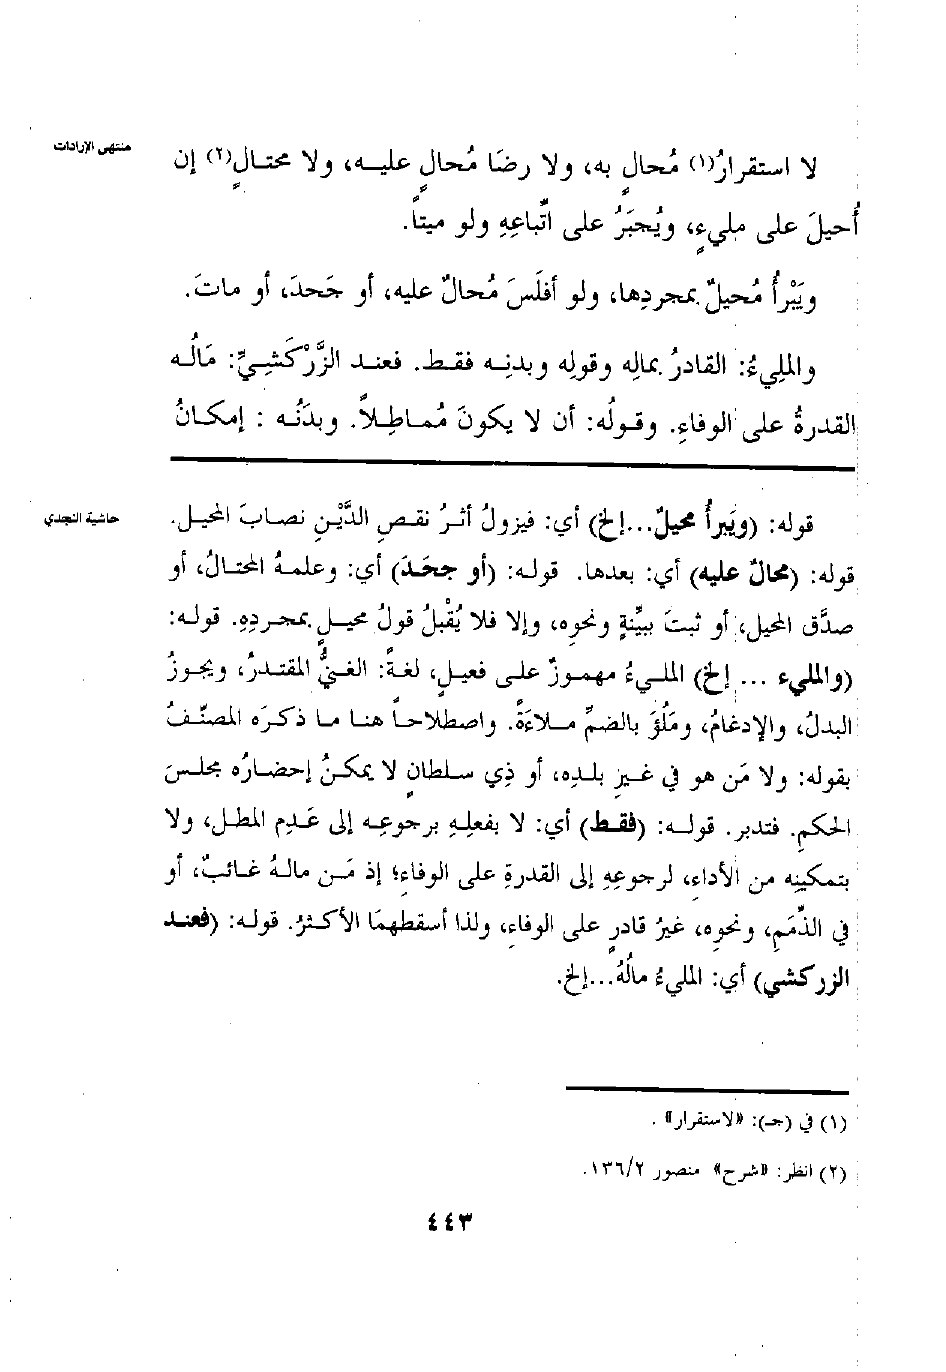 منتهى الإرادات
لا استقرارُ(١) مُحالٍ به، ولا رضَا مُحالٍ عليه، ولا محتالٍ(٢) إن
أُحيلَ على مليءٍ، ويُجبَرُ على اتِّباعِهِ ولو ميتاً.
ويَبْرأُ مُحيلٌ بمجردِها، ولو أفلَسَ مُحالٌ عليه، أو جَحدَ، أو ماتَ.
والمَلِيءُ: القادرُ بمالِه وقولِه وبدنِه فقط. فعند الزَّرْكَشِيِّ: مَالُه
القدرةُ على الوفاءِ. وقولُه: أن لا يكونَ مُماطِلاً. وبدَنُه : إمكانُ
حاشية النجدي
قوله: (ويَبرأُ محيلٌ...إلخ) أي: فيزولُ أثرُ نقصِ الدَّيْنِ نصابَ المحيل.
قوله: (محالٌ عليه) أي: بعدها. قوله: (أو جحَدَ) أي: وعلمهُ المحتالُ، أو
صدَّق المحيل، أو ثبتَ ببيِّنةٍ ونحوِه، وإلا فلا يُقْبلُ قولُ محيلٍ بمجردِهِ. قوله:
(والمليء ... إلخ) المليءُ مهموزٌ على فعيلٍ، لغةً: الغنيُّ المقتدرُ، ويجوزُ
البدلُ، والإدغامُ، ومَلُؤَ بالضمِّ ملاءَةً. واصطلاحاً هنا ما ذكرَه المصنّفُ
بقوله: ولا مَن هو في غيرِ بلدِه، أو ذِي سلطانٍ لا يمكنُ إحضارُه مجلسَ
الحكمِ. فتدبر. قوله: (فقط) أي: لا بفعلِهِ برجوعِه إلى عَدمِ المطل، ولا
بتمكينِه من الأداءِ، لرجوعِهِ إلى القدرةِ على الوفاءِ؛ إذ مَن مالهُ غائبٌ، أو
في الذِّمَمِ، ونحوِه، غيرُ قادرٍ على الوفاءِ، ولذا أسقطهمَا الأكثرُ. قوله: (فعند
الزركشي) أي: المليءُ مالُهُ...إلخ.
(١) في (جـ): «لاستقرار» .
(٢) انظر: «شرح» منصور ١٣٦/٢.
٤٤٣